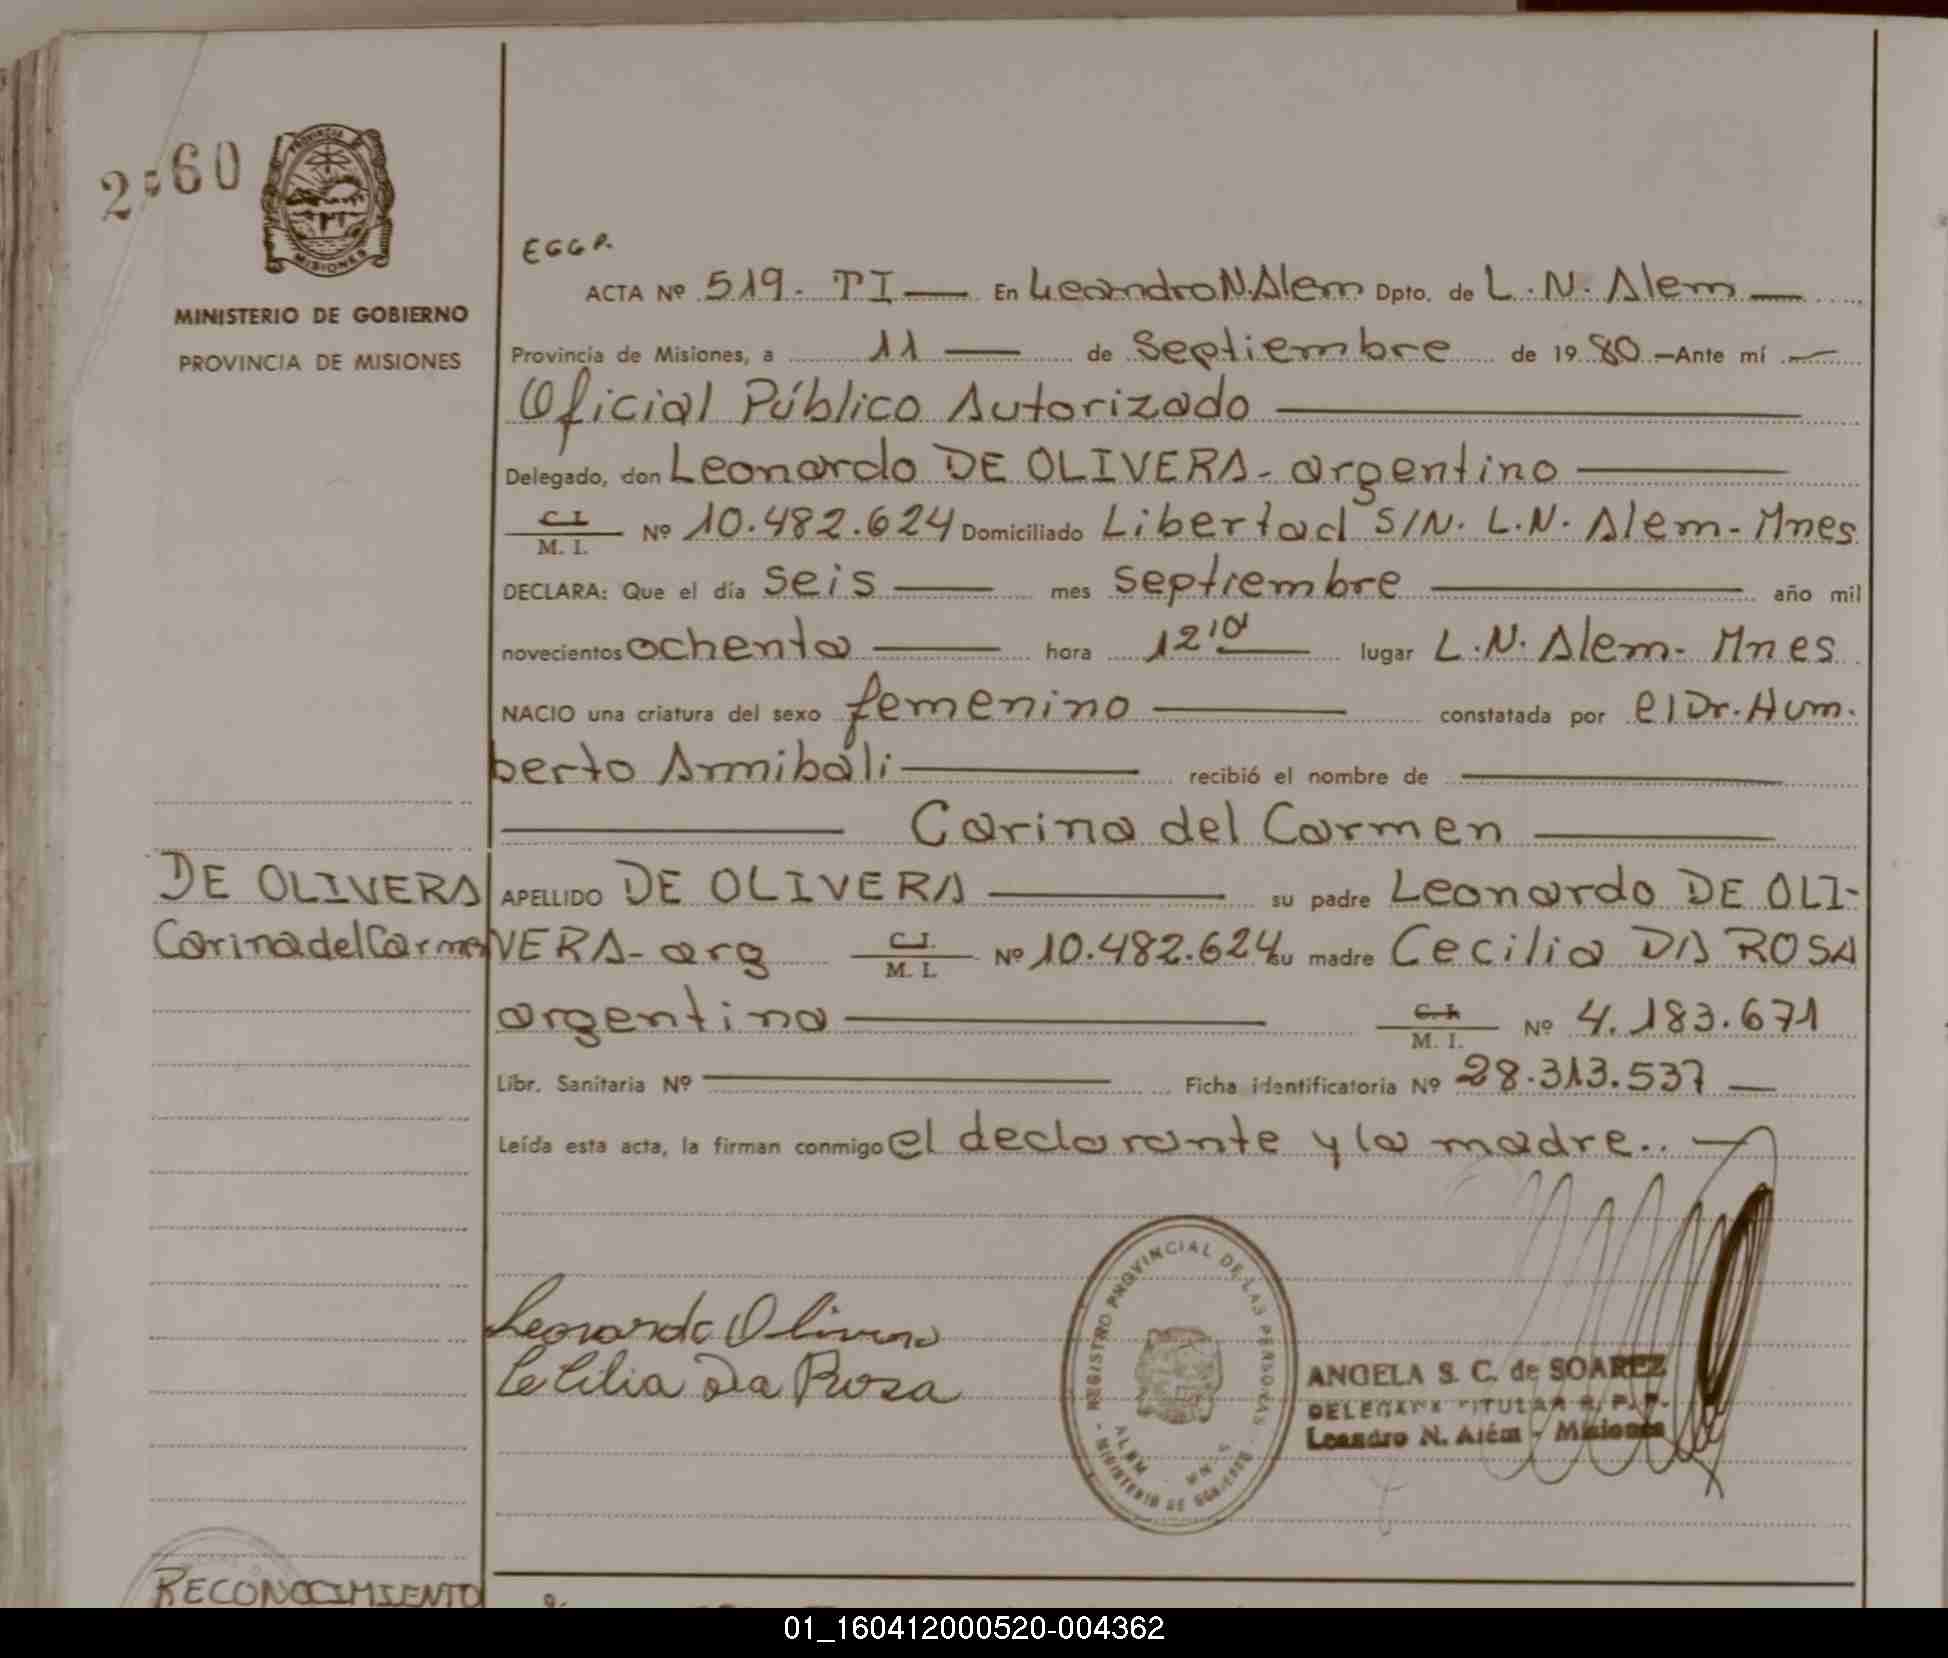 2 60
PROVINCIA
MISIONES
MINISTERIO DE GOBIERNO
PROVINCIA DE MISIONES
EGGP.
ACTA Nº 519. TI — En Leandro N. Alem Dpto. de L. N. Alem —
Provincia de Misiones, a 11 — de Septiembre de 1980 —Ante mí —
Oficial Público Autorizado —
Delegado, don Leonardo DE OLIVERA - argentino —
C. I. M. I. Nº 10.482.624 Domiciliado Libertad S/N. L.N. Alem - Mnes
DECLARA: Que el día seis — mes septiembre — año mil
novecientos ochenta — hora 12 10 — lugar L.N. Alem - Mnes
NACIO una criatura del sexo femenino — constatada por el Dr. Hum.
berto Annibali — recibió el nombre de —
— Carina del Carmen —
DE OLIVERA
Carina del Carmen
APELLIDO DE OLIVERA — su padre Leonardo DE OLI-
VERA - arg C. I. M. I. Nº 10.482.624 su madre Cecilia DA ROSA
argentina — C. I. M. I. Nº 4.183.671
Libr. Sanitaria Nº — Ficha identificatoria Nº 28.313.537 —
Leída esta acta, la firman conmigo el declarante y la madre.. —
Leonardo Olivera
Cecilia Da Rosa
REGISTRO PROVINCIAL DE LAS PERSONAS
ALEM MNES
MINISTERIO DE GOBIERNO
ANGELA S. C. de SOAREZ
DELEGADA TITULAR R. P. P.
Leandro N. Além - Misiones
RECONOCIMIENTO
01_160412000520-004362